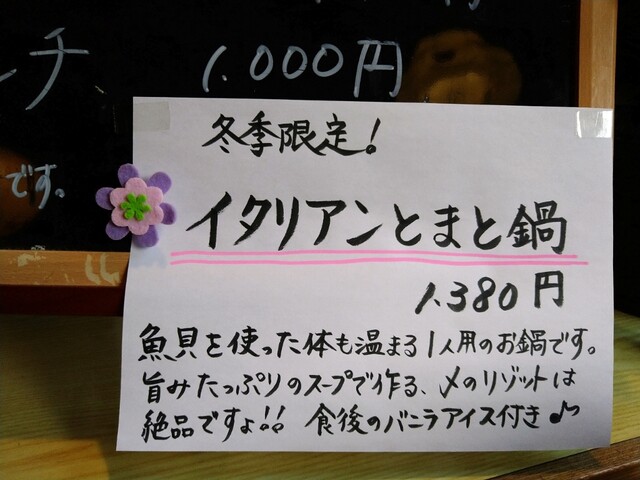 ンチ 1.000円
です。
冬季限定!
イタリアンとまと鍋
1.380円
魚貝を使った体も温まる1人用のお鍋です。
旨みたっぷりのスープで作る、〆のリゾットは
絶品ですょ!! 食後のバニラアイス付き♪